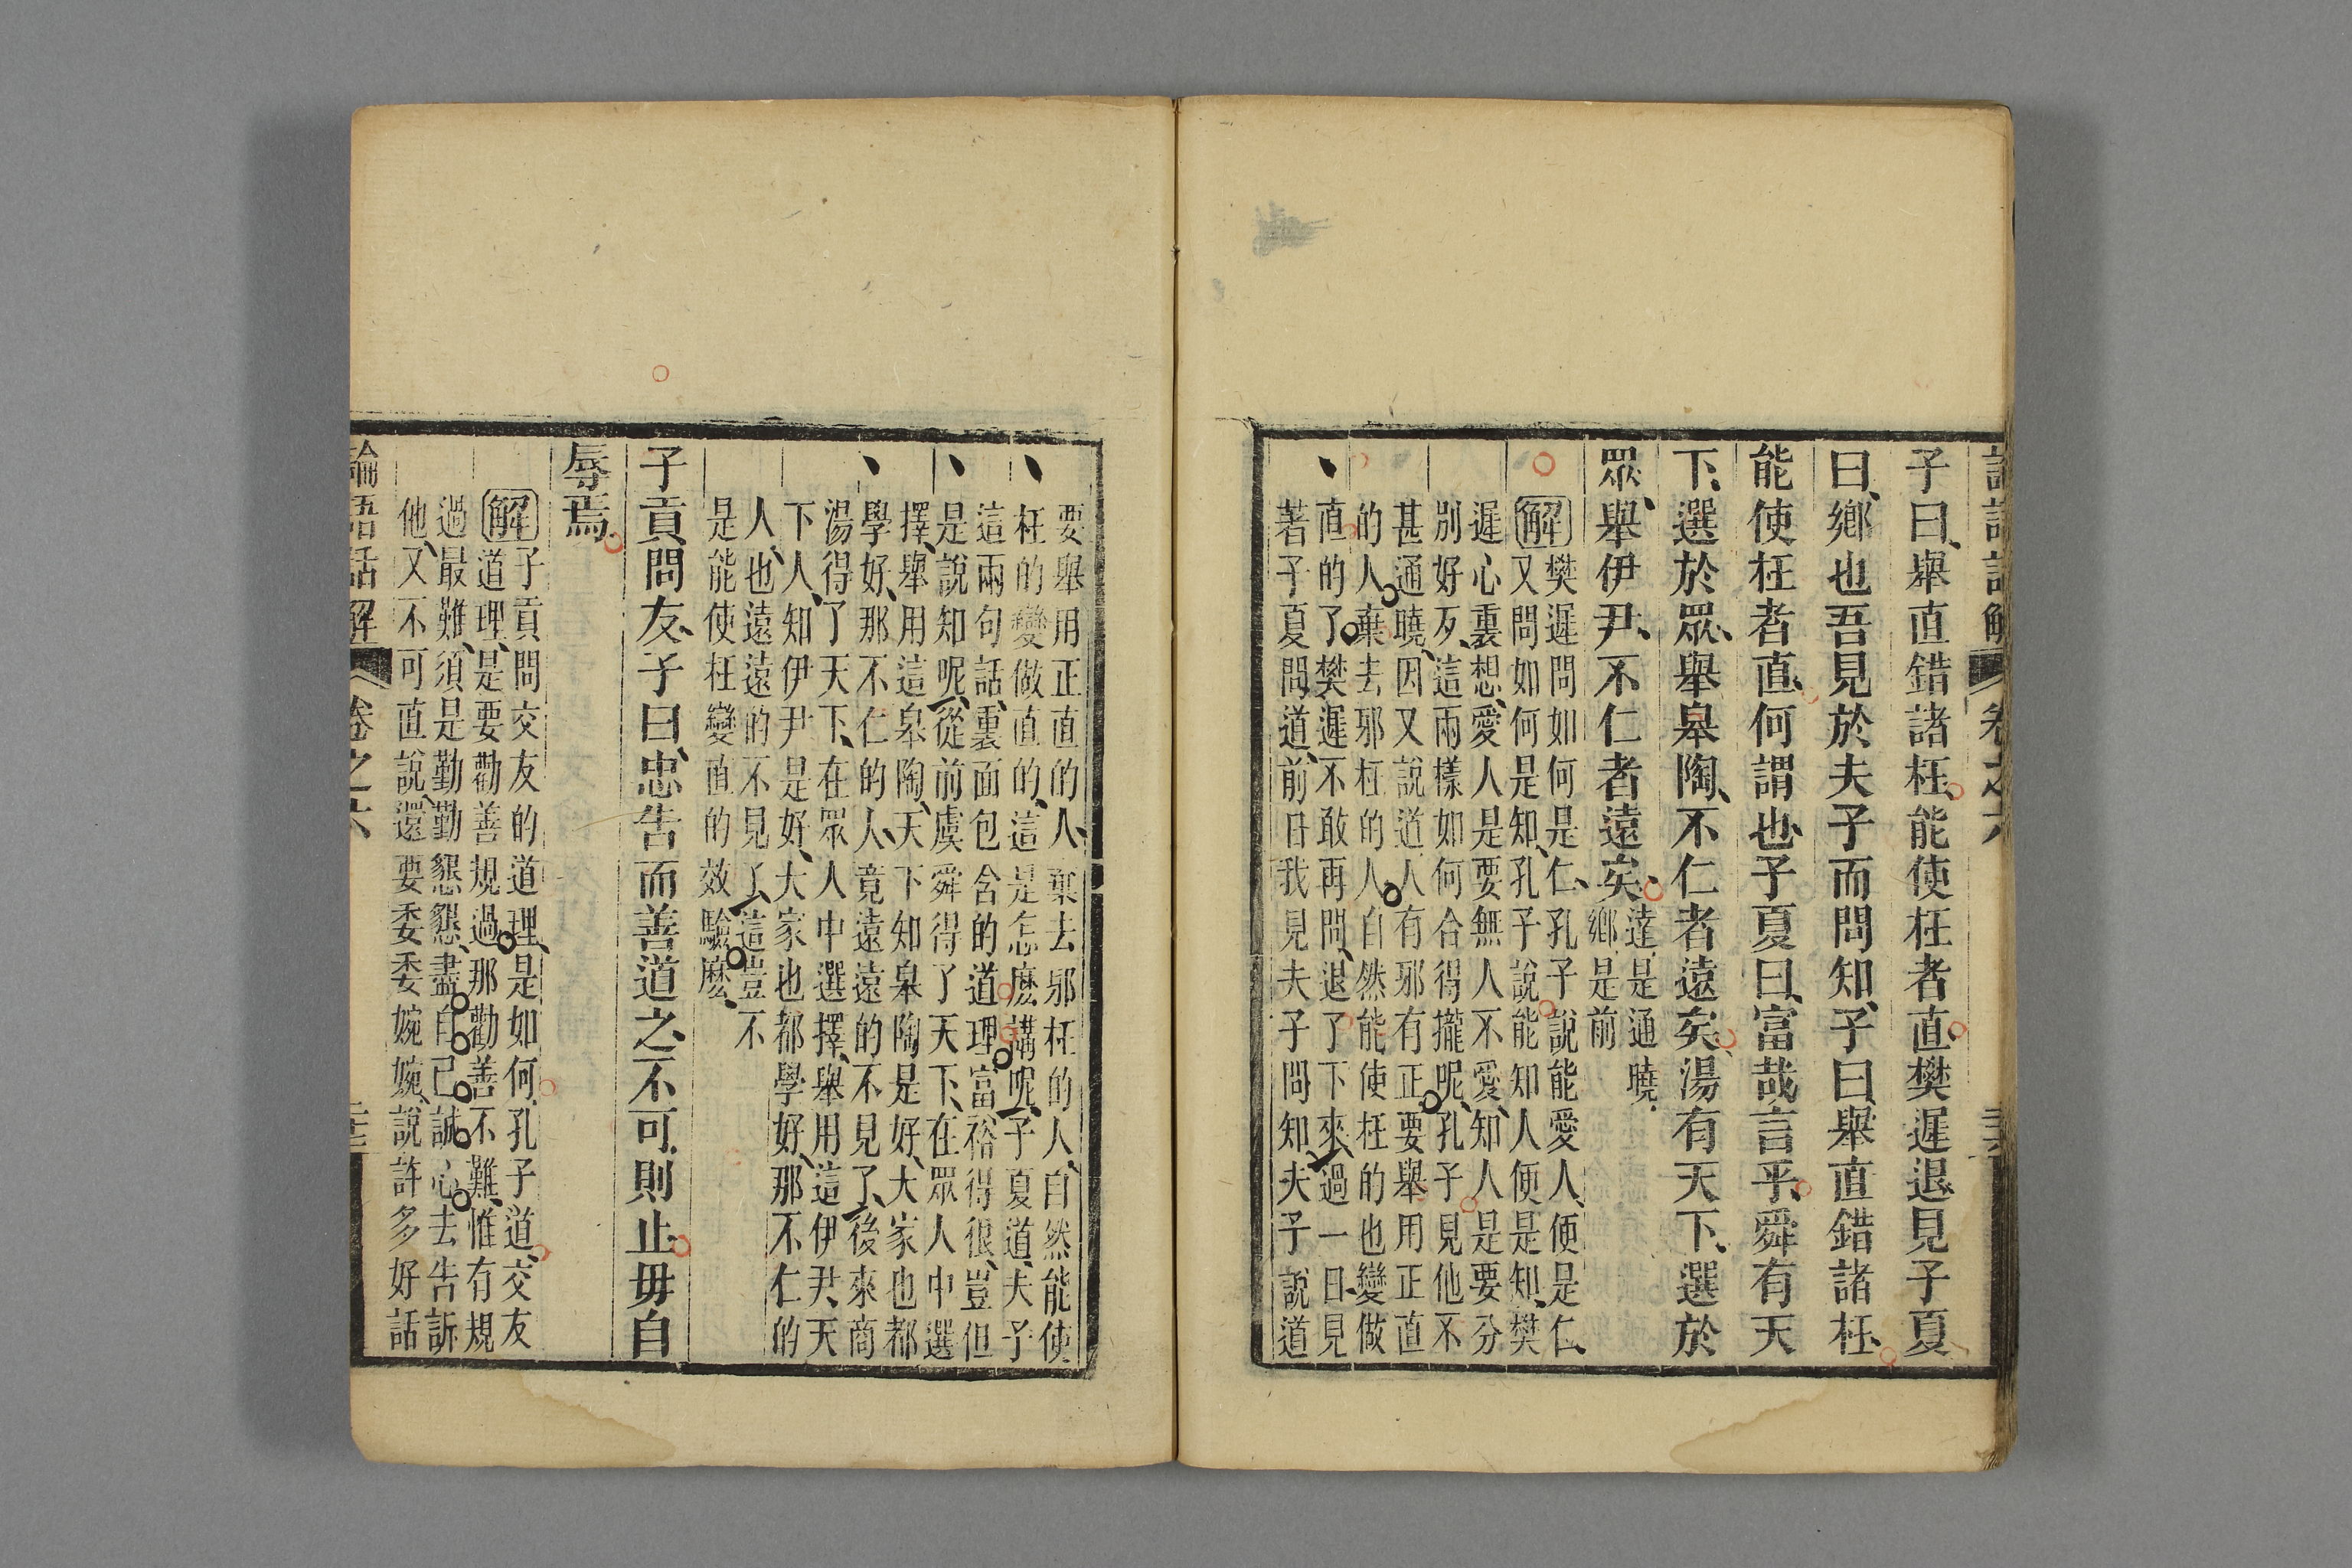 子曰、舉直錯諸枉、能使枉者直、樊遲退、見子夏
曰、鄉也吾見於夫子而問知、子曰、舉直錯諸枉、
能使枉者直、何謂也、子夏曰、富哉言乎、舜有天
下、選於眾、舉皋陶、不仁者遠矣、湯有天下、選於
眾、舉伊尹、不仁者遠矣、
達、是通曉、
鄉、是前
解樊遲問如何是仁、孔子說能愛人、便是仁、
又問如何是知、孔子說能知人便是知、樊
遲心裏想、愛人是要無人不愛、知人是要分
別好歹、這兩樣如何合得攏呢、孔子見他不
甚通曉、因又說道、人有邪有正、要舉用正直
的人、棄去邪枉的人、自然能使枉的也變做
直的了、樊遲不敢再問、退了下來、過一日、見
著子夏問道、前日我見夫子問知、夫子說道
要舉用正直的人、棄去邪枉的人、自然能使
枉的變做直的、這是怎麽講呢、子夏道、夫子
這兩句話、裏面包含的道理、富裕得很、豈但
是說知呢、從前虞舜得了天下、在眾人中選
擇、舉用這皋陶、天下知皋陶是好、大家也都
學好、那不仁的人、竟遠遠的不見了、後來商
湯得了天下、在眾人中選擇、舉用這伊尹、天
下人、知伊尹是好、大家也都學好、那不仁的
人、也遠遠的不見了、這豈不
是能使枉變直的效驗麽、
子貢問友、子曰、忠告而善道之、不可則止、毋自
辱焉、
解子貢問交友的道理、是如何、孔子道、交友
道理、是要勸善規過、那勸善不難、惟有規
過最難、須是勤勤懇懇、盡自己誠心去告訴
他、又不可直說、還要委委婉婉、說許多好話
論語話解 卷之六